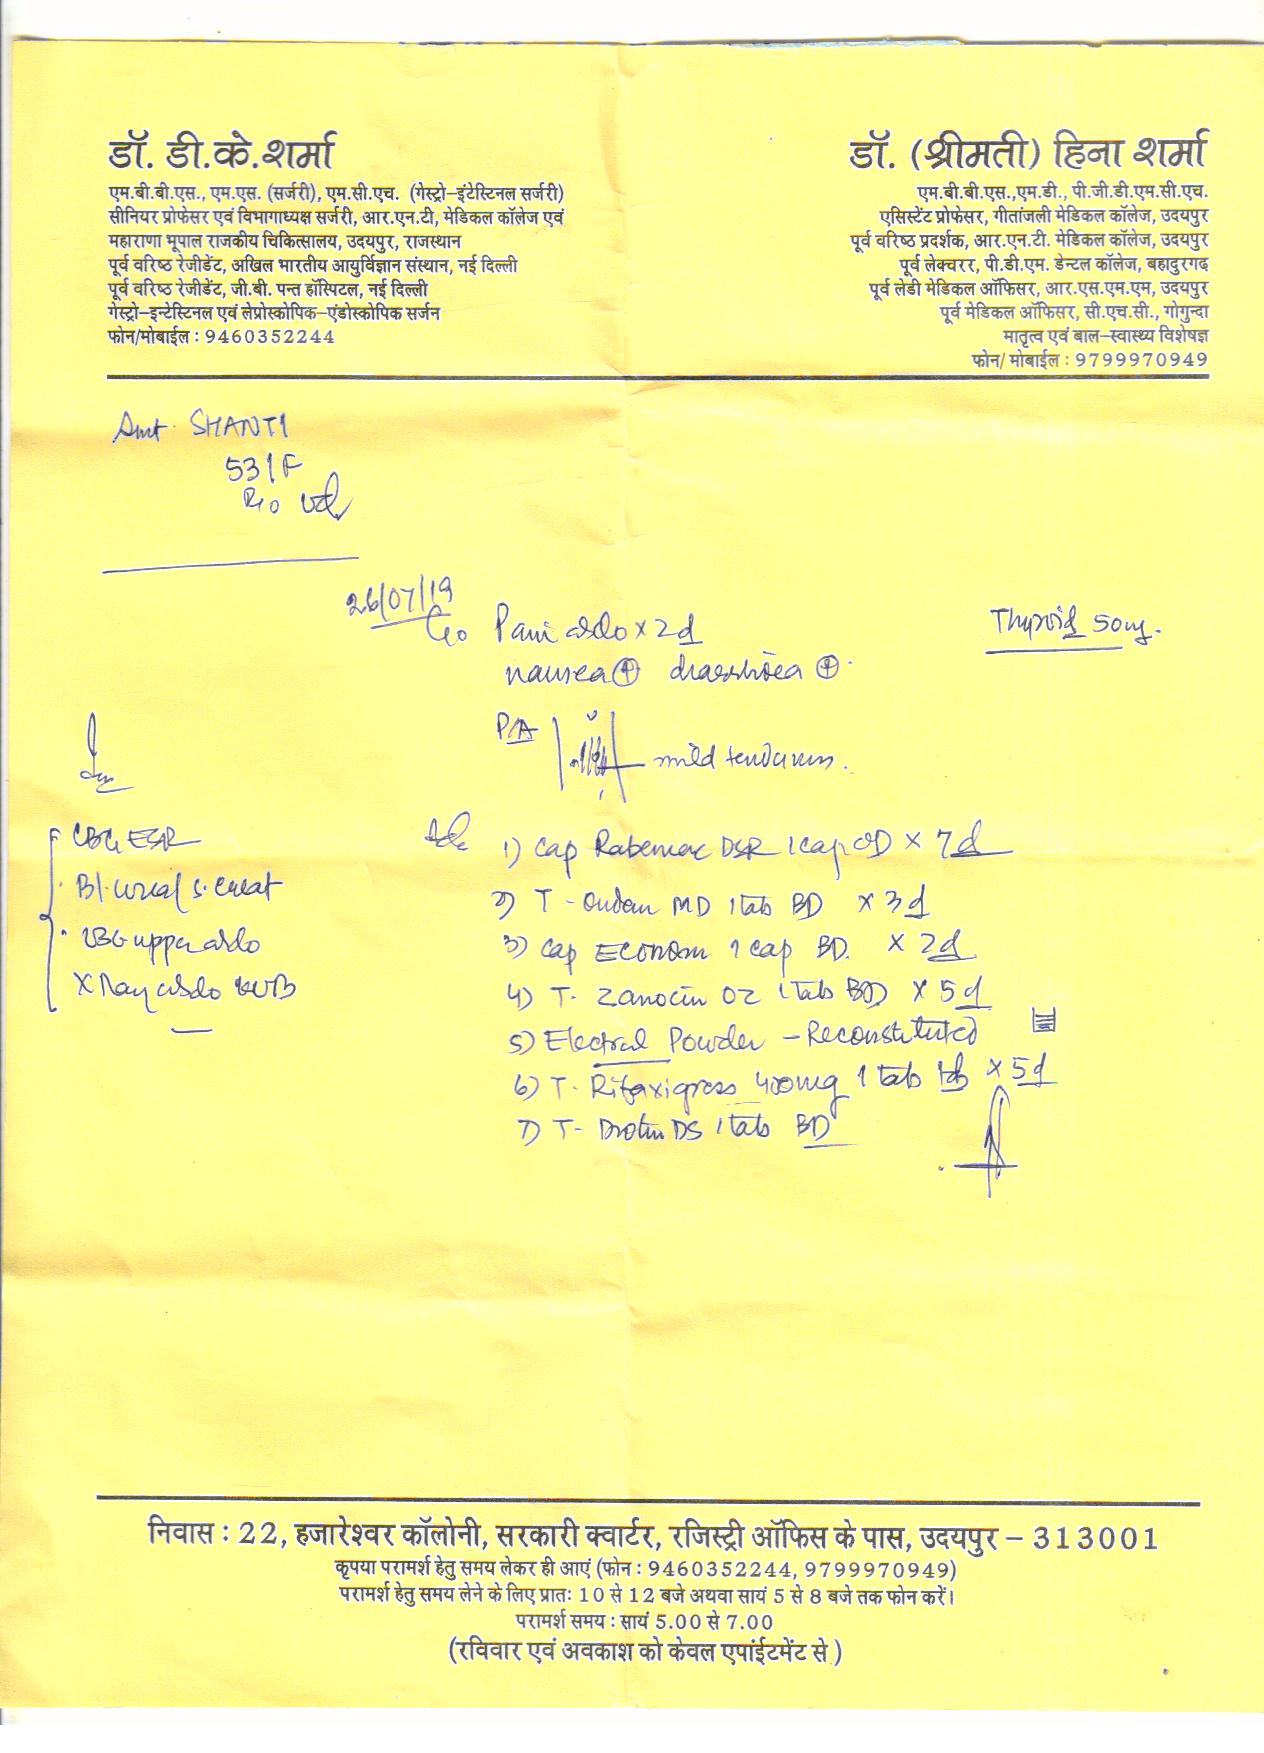 डॉ. डी.के.शर्मा
एम.बी.बी.एस., एम.एस. (सर्जरी), एम.सी.एच. (गेस्ट्रो-इंटेस्टिनल सर्जरी)
सीनियर प्रोफेसर एवं विभागाध्यक्ष सर्जरी, आर.एन.टी, मेडिकल कॉलेज एवं
महाराणा भूपाल राजकीय चिकित्सालय, उदयपुर, राजस्थान
पूर्व वरिष्ठ रेजीडेंट, अखिल भारतीय आयुर्विज्ञान संस्थान, नई दिल्ली
पूर्व वरिष्ठ रेजीडेंट, जी.बी. पन्त हॉस्पिटल, नई दिल्ली
गेस्ट्रो-इन्टेस्टिनल एवं लेप्रोस्कोपिक-एंडोस्कोपिक सर्जन
फोन/मोबाईल : 9460352244
डॉ. (श्रीमती) हिना शर्मा
एम.बी.बी.एस.,एम.डी., पी.जी.डी.एम.सी.एच.
एसिस्टेंट प्रोफेसर, गीतांजली मेडिकल कॉलेज, उदयपुर
पूर्व वरिष्ठ प्रदर्शक, आर.एन.टी. मेडिकल कॉलेज, उदयपुर
पूर्व लेक्चरर, पी.डी.एम. डेन्टल कॉलेज, बहादुरगढ़
पूर्व लेडी मेडिकल ऑफिसर, आर.एस.एम.एम, उदयपुर
पूर्व मेडिकल ऑफिसर, सी.एच.सी., गोगुन्दा
मातृत्व एवं बाल-स्वास्थ्य विशेषज्ञ
फोन/ मोबाईल : 9799970949
Smt. SHANTI
53/F
R/o
26/07/19
C/o Pain abdo x 2d
nausea ⊕ diarrhoea ⊕
Thyroid 50
P/A
mild tenderness.
CBC, ESR
Bl. urea/ s. creat
USG upper abdo
X Ray abdo KUB
Adv
1) Cap Rabemac DSR 1cap OD x 7d
2) T- Ondem MD 1tab BD x 3d
3) Cap ECONORM 1 cap BD. x 2d
4) T- Zanocin OZ 1tab BD x 5d
5) Electral Powder - Reconstituted
6) T- Rifaxigress 400mg 1 tab x 5d
7) T- Drotin DS 1tab BD
निवास : 22, हजारेश्वर कॉलोनी, सरकारी क्वार्टर, रजिस्ट्री ऑफिस के पास, उदयपुर - 313001
कृपया परामर्श हेतु समय लेकर ही आएं (फोन : 9460352244, 9799970949)
परामर्श हेतु समय लेने के लिए प्रातः 10 से 12 बजे अथवा सायं 5 से 8 बजे तक फोन करें।
परामर्श समय : सायं 5.00 से 7.00
(रविवार एवं अवकाश को केवल एपांईटमेंट से )